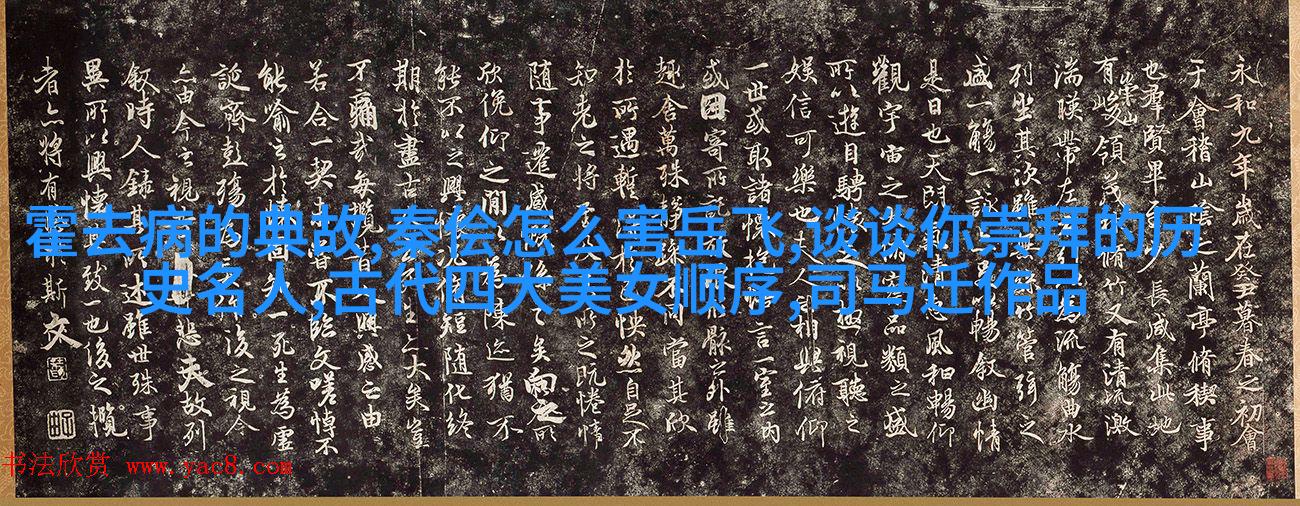 霍去病的典故,秦侩怎么害岳飞,谈谈你崇拜的历
史名人,古代四大美女顺序,司马迁作品
永和九年歲在癸丑暮春之初會
于會稽山陰之蘭亭脩稧事
也羣賢畢至少長咸集此地
有崇山峻領茂林脩竹又有清流激
湍暎帶左右引以為流觴曲水
列坐其次雖無絲竹管弦之
盛一觴一詠亦足以暢敘幽情
是日也天朗氣清惠風和暢仰
觀宇宙之大俯察品類之盛
所以遊目騁懷足以極視聽之
娛信可樂也夫人之相與俯仰
一世或取諸懷抱悟言一室之內
或因寄所託放浪形骸之外雖
趣舍萬殊靜躁不同當其欣
於所遇暫得於己怏然自足不
知老之將至及其所之既惓情
隨事遷感慨係之矣向之所
欣俛仰之閒以為陳迹猶不
能不以之興懷況脩短隨化終
期於盡古人云死生亦大矣豈
不痛哉每攬昔人興感之由
若合一契未嘗不臨文嗟悼不
能喻之於懷固知一死生為虛
誕齊彭殤為妄作後之視今
亦由今之視昔悲夫故列
敘時人錄其所述雖世殊事
異所以興懷其致一也後之攬
者亦將有感於斯文
书法欣赏 www.yac8.com